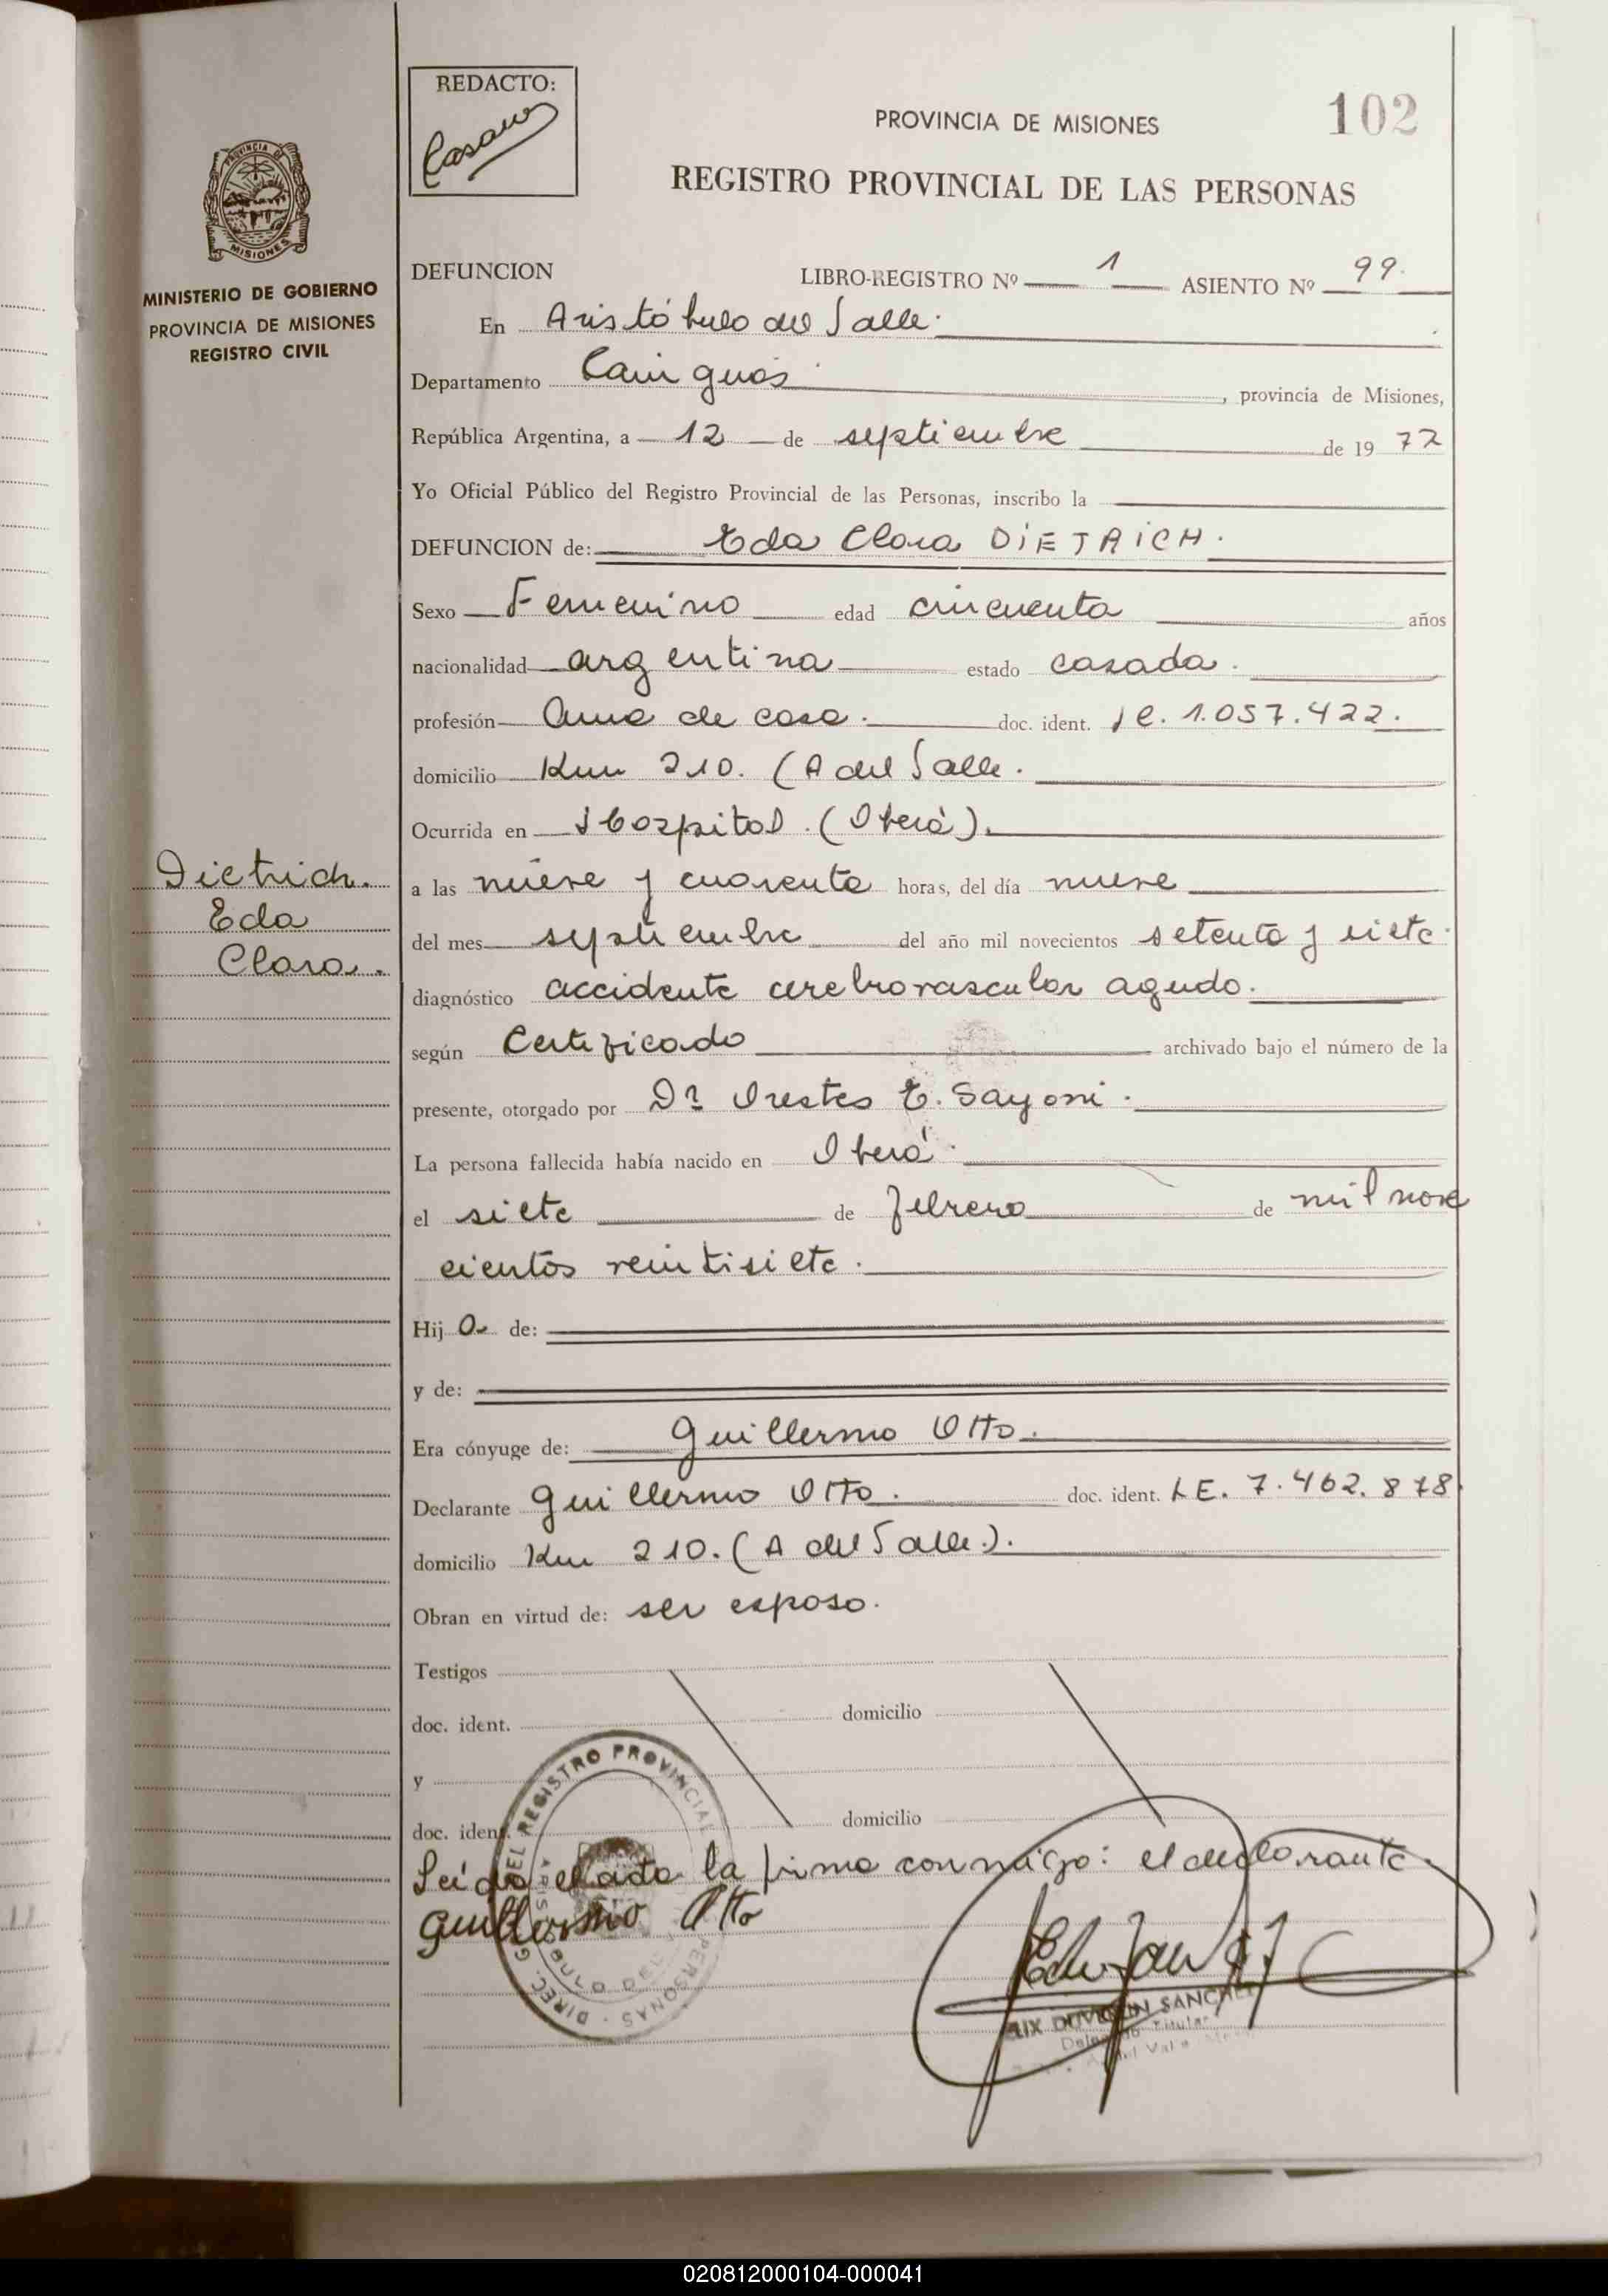 102
REDACTO:
Casano
PROVINCIA DE MISIONES
REGISTRO PROVINCIAL DE LAS PERSONAS
PROVINCIA DE
MISIONES
MINISTERIO DE GOBIERNO
PROVINCIA DE MISIONES
REGISTRO CIVIL
DEFUNCION LIBRO-REGISTRO Nº 1 ASIENTO Nº 99.
En Aristóbulo del Valle.
Departamento Cainguás , provincia de Misiones,
República Argentina, a 12 de septiembre de 19 77
Yo Oficial Público del Registro Provincial de las Personas, inscribo la
DEFUNCION de: Eda Clara DIETRICH.
Sexo Femenino edad cincuenta años
nacionalidad argentina estado casada.
profesión Ama de casa. doc. ident. 1.057.422.
domicilio Km 210. (A del Valle.
Ocurrida en Hospital. (Oberá).
Dietrich.
Eda
Clara.
a las nueve y cuarenta horas, del día nueve
del mes septiembre del año mil novecientos setenta y siete.
diagnóstico accidente cerebrovascular agudo.
según Certificado archivado bajo el número de la
presente, otorgado por Dr. Orestes E. Sayoni.
La persona fallecida había nacido en Oberá.
el siete de febrero de mil nove
cientos veintisiete.
Hij a de:
y de:
Era cónyuge de: Guillermo Otto.
Declarante Guillermo Otto. doc. ident. LE. 7.462.878
domicilio Km 210. (A del Valle).
Obran en virtud de: ser esposo.
Testigos
doc. ident. domicilio
y
doc. ident. domicilio
Leída el acta la firma conmigo: el declarante.
Guillermo Otto
DIREC. G. DEL REGISTRO PROVINCIAL PERSONAS
SANCHEZ
Titular
020812000104-000041